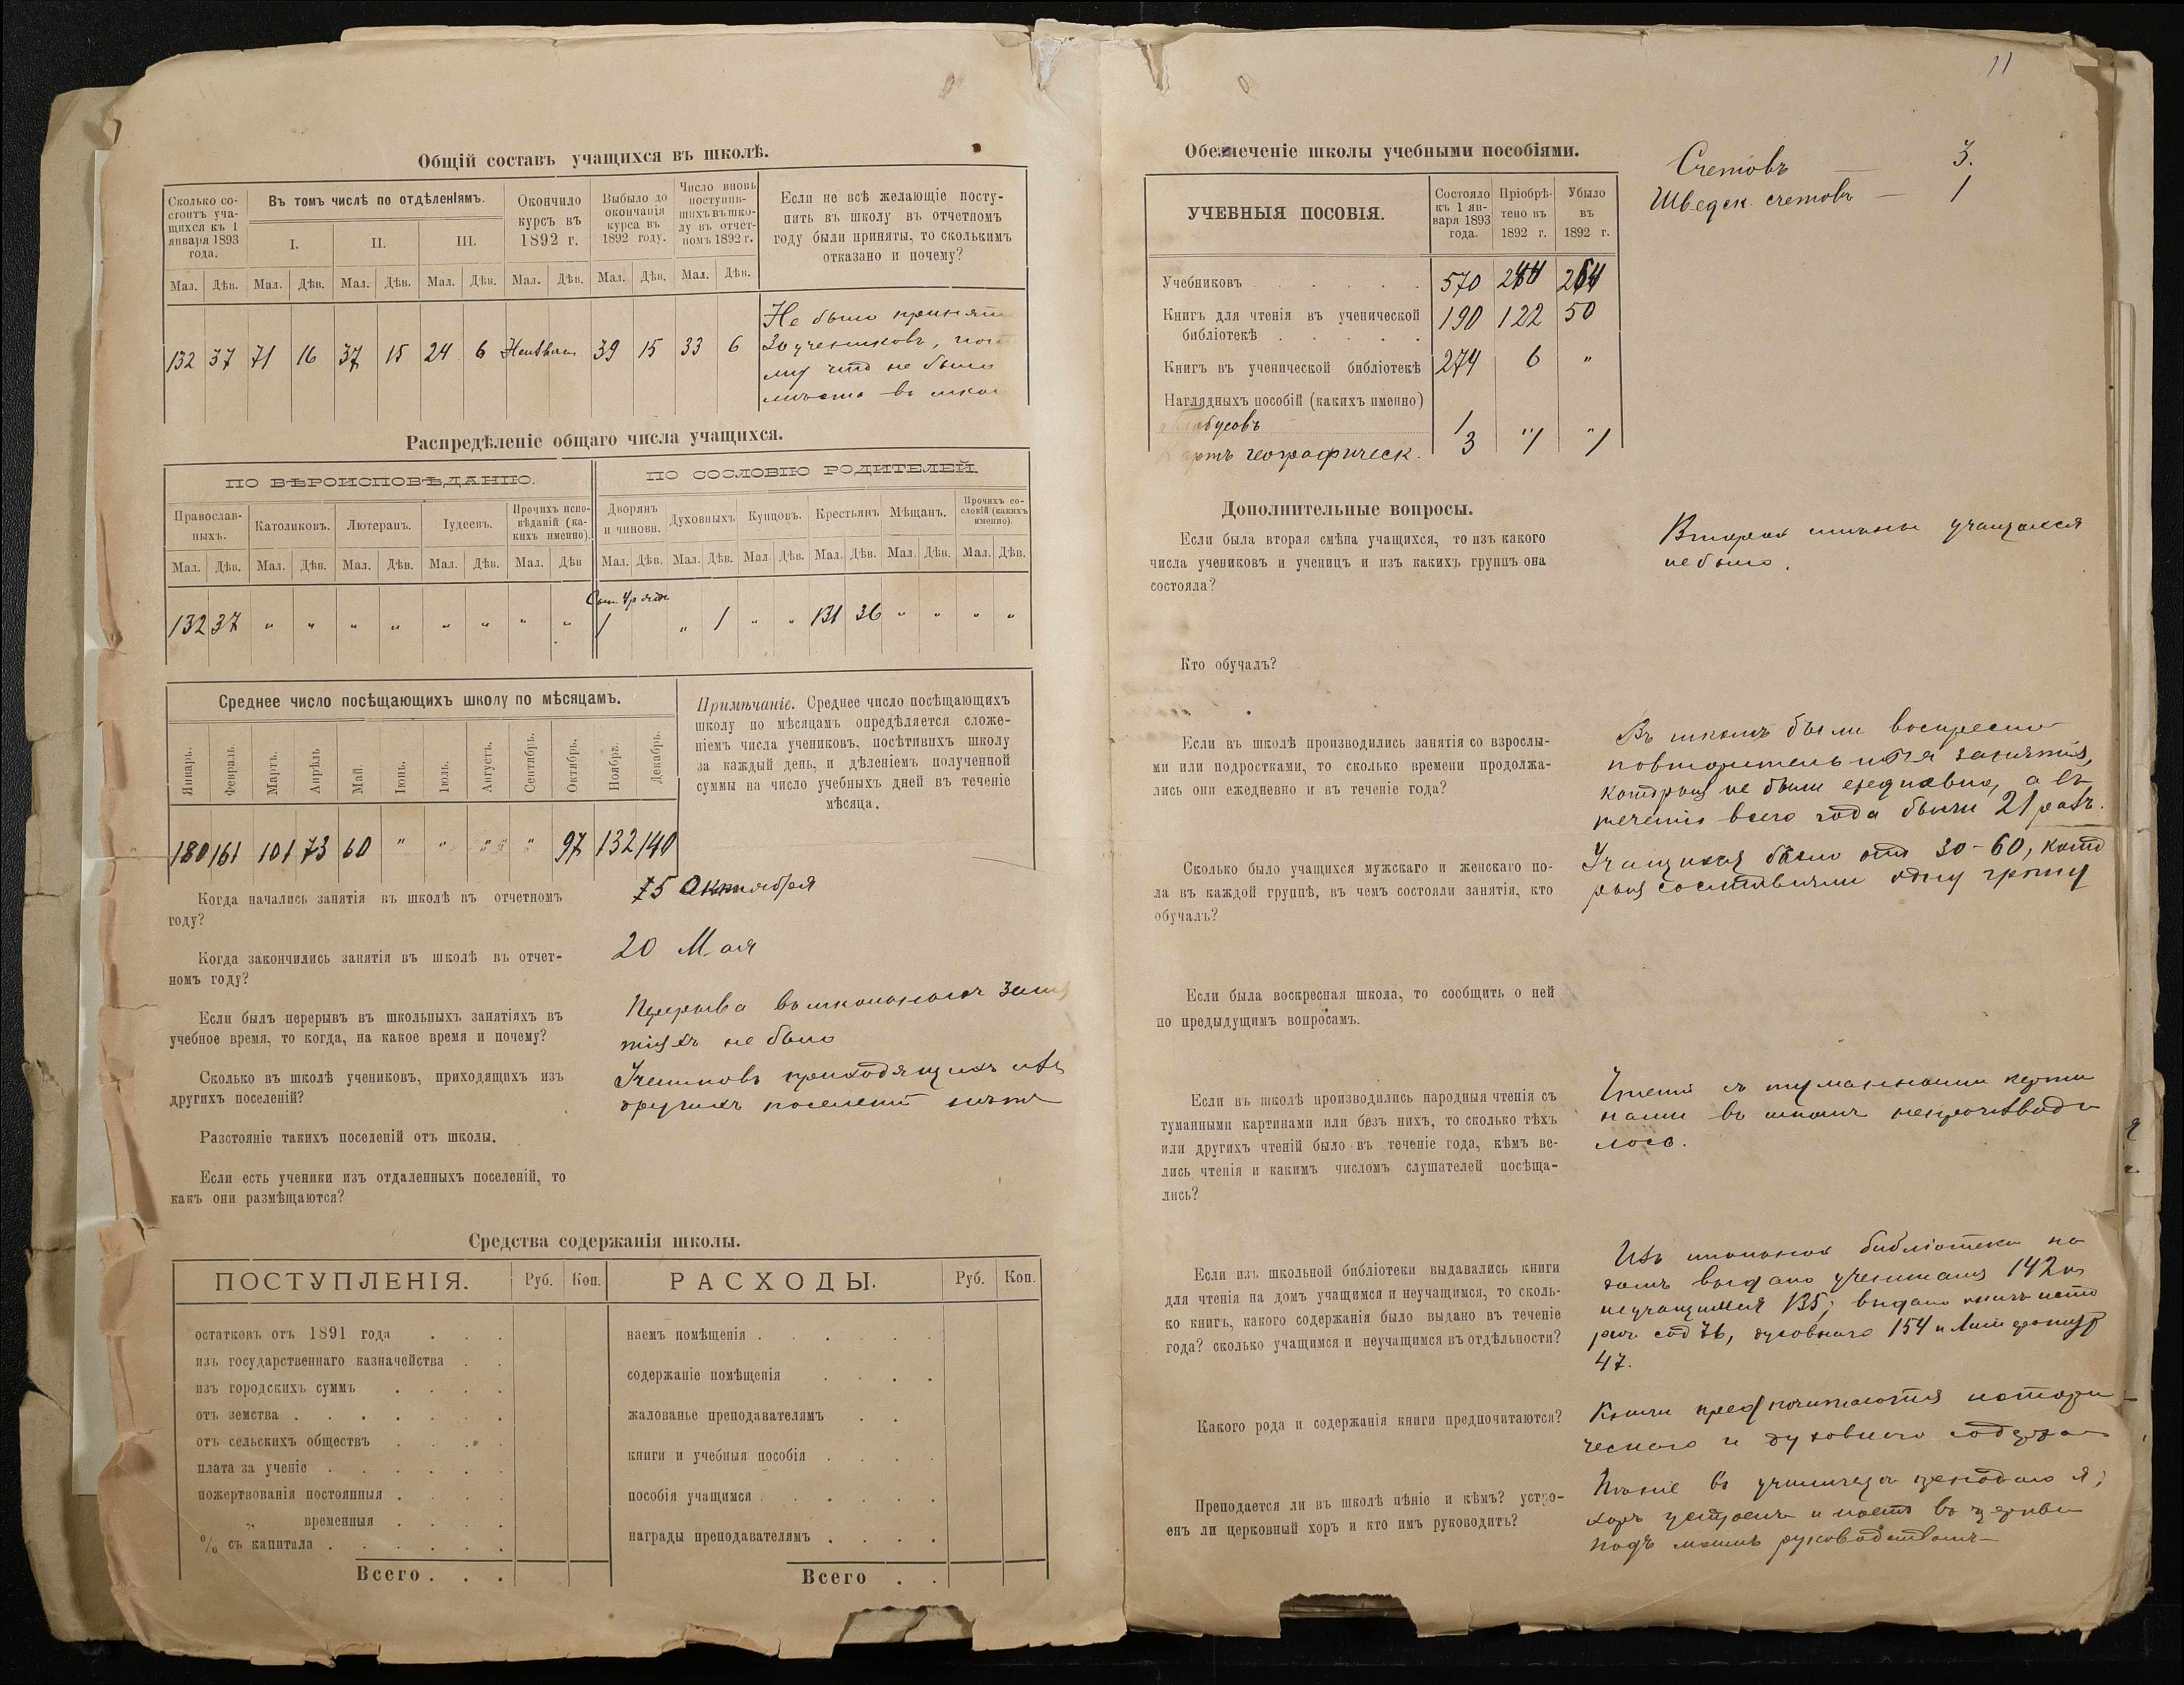 11
Общій составъ учащихся въ школѣ.
Сколько со-
стоитъ уча-
щихся къ 1
января 1893
года.
Въ томъ числѣ по отдѣленіямъ.
I. II. III.
Окончило
курсъ въ
1892 г.
Выбыло до
окончанія
курса въ
1892 году.
Число вновь
поступив-
шихъ въ шко-
лу въ отчет-
номъ 1892 г.
Если не всѣ желающіе посту-
пить въ школу въ отчетномъ
году были приняты, то сколькимъ
отказано и почему?
Мал. Дѣв. Мал. Дѣв. Мал. Дѣв. Мал. Дѣв. Мал. Дѣв. Мал. Дѣв. Мал. Дѣв.
132 37 71 16 37 15 24 6 39 15 33 6
Не было принято
30 учениковъ, пото
му что не было
мѣста въ шко
Распредѣленіе общаго числа учащихся.
ПО ВѢРОИСПОВѢДАНІЮ.
ПО СОСЛОВІЮ РОДИТЕЛЕЙ.
Православ-
ныхъ.
Католиковъ.
Лютеранъ.
Іудеевъ.
Прочихъ испо-
вѣданій (ка-
кихъ именно).
Дворянъ
и чиновн.
Духовныхъ
Купцовъ.
Крестьянъ
Мѣщанъ.
Прочихъ со-
словій (какихъ
именно).
Мал. Дѣв. Мал. Дѣв. Мал. Дѣв. Мал. Дѣв. Мал. Дѣв Мал. Дѣв. Мал. Дѣв. Мал. Дѣв. Мал. Дѣв. Мал. Дѣв. Мал. Дѣв.
132 37 " " " " " " " " 1 " 1 " " 131 36 " " " "
Среднее число посѣщающихъ школу по мѣсяцамъ.
Январь. Февраль. Мартъ. Апрѣль Май. Іюнь. Іюль. Августъ. Сентябрь. Октябрь. Ноябрь. Декабрь.
180 161 101 73 60 " " " " 97 132 140
Примѣчаніе. Среднее число посѣщающихъ
школу по мѣсяцамъ опредѣляется сложе-
ніемъ числа учениковъ, посѣтивихъ школу
за каждый день, и дѣленіемъ полученной
суммы на число учебныхъ дней въ теченіе
мѣсяца.
Когда начались занятія въ школѣ въ отчетномъ
году?
Октября
Когда закончились занятія въ школѣ въ отчет-
номъ году?
20 Мая
Если былъ перерывъ въ школьныхъ занятіяхъ въ
учебное время, то когда, на какое время и почему?
Перерыва въ школьныхъ заня
тіяхъ не было
Сколько въ школѣ учениковъ, приходящихъ изъ
другихъ поселеній?
Учениковъ приходящихъ изъ
другихъ поселеній нѣтъ
Разстояніе такихъ поселеній отъ школы.
Если есть ученики изъ отдаленныхъ поселеній, то
какъ они размѣщаются?
Средства содержанія школы.
ПОСТУПЛЕНІЯ. Руб. Коп. РАСХОДЫ. Руб. Коп.
остатковъ отъ 1891 года . . .
изъ государственнаго казначейства . .
изъ городскихъ суммъ . . . .
отъ земства . . . . . . .
отъ сельскихъ обществъ . . . .
плата за ученіе . . . . . .
пожертвованія постоянныя . . . .
„ временныя . . . .
% съ капитала . . . . . .
Всего . . .
наемъ помѣщенія . . . . . .
содержаніе помѣщенія . . . .
жалованье преподавателямъ . .
книги и учебныя пособія . . . .
пособія учащимся . . . . . .
награды преподавателямъ . . . .
Всего . .
Обезпеченіе школы учебными пособіями.
УЧЕБНЫЯ ПОСОБІЯ.
Состояло
къ 1 ян-
варя 1893
года.
Пріобрѣ-
тено въ
1892 г.
Убыло
въ
1892 г.
Учебниковъ . . . . . . 570
Книгъ для чтенія въ ученической
библіотекѣ . . . . . 190 122 50
Книгъ въ ученической библіотекѣ 274 6 "
Наглядныхъ пособій (какихъ именно)
Глобусовъ 1
Картъ географическ. 3 " "
Счетовъ — 3.
Шведск. счетовъ — 1
Дополнительные вопросы.
Если была вторая смѣна учащихся, то изъ какого
числа учениковъ и ученицъ и изъ какихъ группъ она
состояла?
Второй смѣны учащихся
не было.
Кто обучалъ?
Если въ школѣ производились занятія со взрослы-
ми или подростками, то сколько времени продолжа-
лись они ежедневно и въ теченіе года?
Въ школѣ были воскресно
повторительныя занятія,
которыя не были ежедневно, а въ
теченіе всего года были 21 разъ.
Сколько было учащихся мужскаго и женскаго по-
ла въ каждой группѣ, въ чемъ состояли занятія, кто
обучалъ?
Учащихся было отъ 30-60, кото
рыя составляли одну группу
Если была воскресная школа, то сообщить о ней
по предыдущимъ вопросамъ.
Если въ школѣ производились народныя чтенія съ
туманными картинами или безъ нихъ, то сколько тѣхъ
или другихъ чтеній было въ теченіе года, кѣмъ ве-
лись чтенія и какимъ числомъ слушателей посѣща-
лись?
Чтеній съ туманными карти
нами въ школѣ непроизводи
лось.
Если изъ школьной библіотеки выдавались книги
для чтенія на домъ учащимся и неучащимся, то сколь-
ко книгъ, какого содержанія было выдано въ теченіе
года? сколько учащимся и неучащимся въ отдѣльности?
Изъ школьной библіотеки на
домъ выдано ученикамъ 142 и
неучащимся 135; выдано книгъ исто
рич сод 76, духовнаго 154 и
47.
Какого рода и содержанія книги предпочитаются?
Книги предпочитаются истори
ческаго и духовнаго содержан
Преподается ли въ школѣ пѣніе и кѣмъ? устро-
енъ ли церковный хоръ и кто имъ руководитъ?
Пѣніе въ училищѣ преподаю я;
хоръ устроенъ и поетъ въ церкви
подъ моимъ руководствомъ